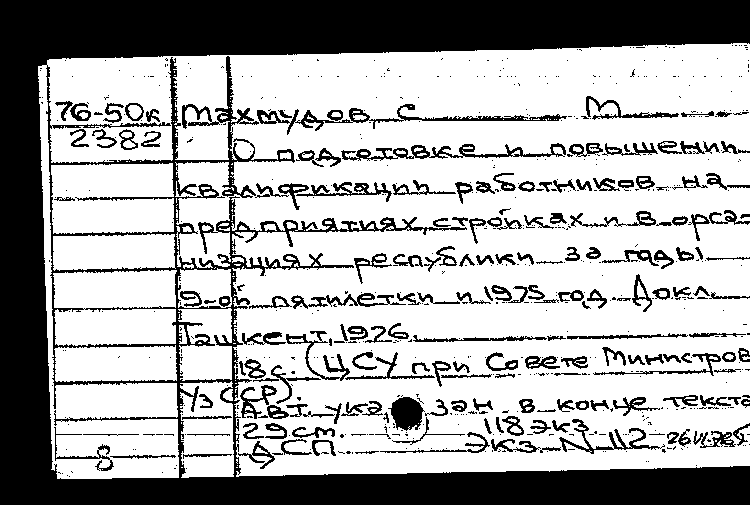 76-50к Махмудов, С М
2382 О подготовке и повышении
квалификации работников на
предприятиях, стройках и в орга-
низациях республики за годы
9-ой пятилетки и 1975 год. Докл.
Ташкент, 1976.
18 с. (ЦСУ при Совете Министров
Уз ССР).
Авт. указан в конце текста
29 см. 118 экз.
8 ДСП Экз. N 112